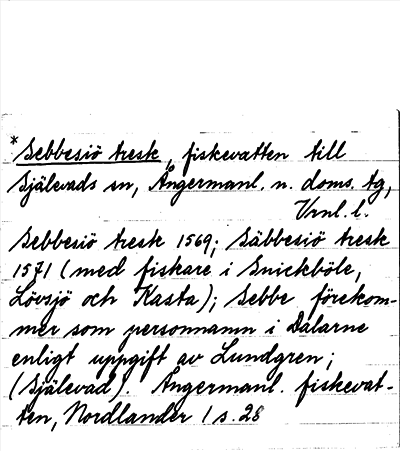 * Sebbesiö tresk, fiskevatten till
Själevads sn, Ångermanl. n. doms. tg,
Vrnl. l.
Sebbesiö tresk 1569; Säbbesiö tresk
1571 (med fiskare i Snickböle,
Lövsjö och Kasta); Sebbe förekom-
mer som personnamn i Dalarne
enligt uppgift av Lundgren;
(Själevad) Ångermanl. fiskevat-
ten, Nordlander 1 s. 28